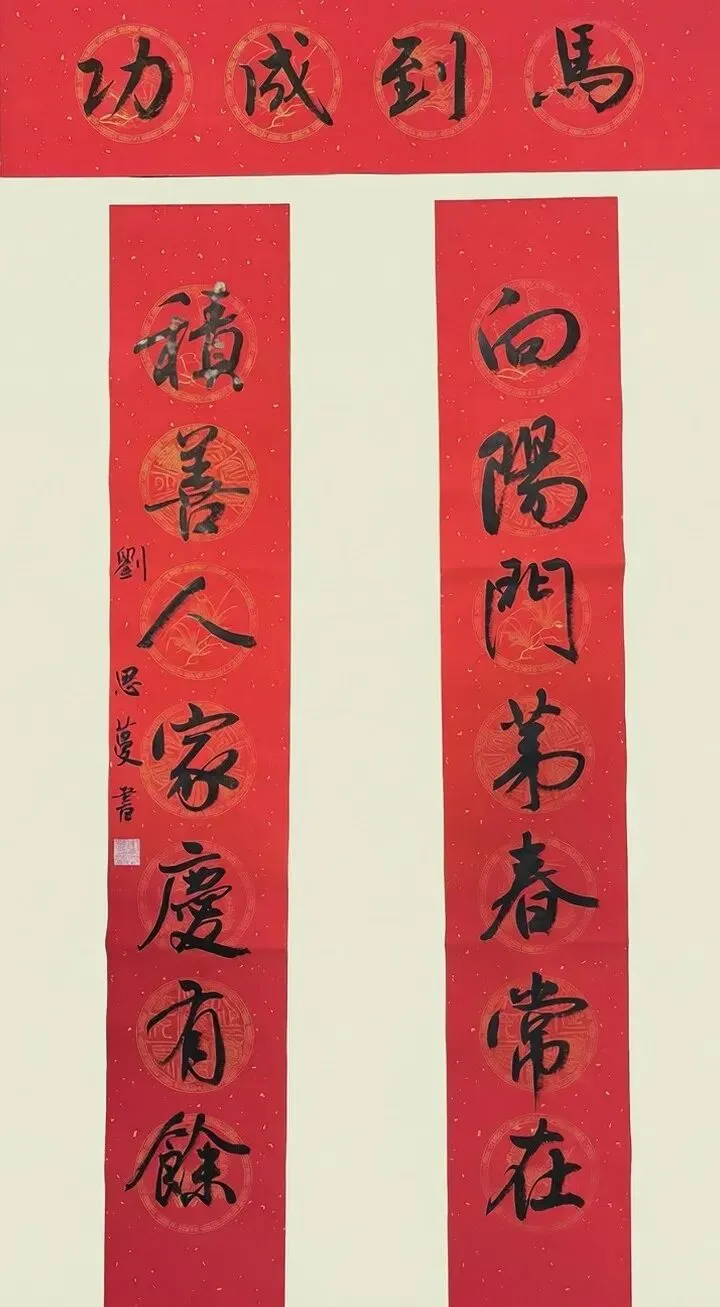 馬到成功
向陽門第春常在
積善人家慶有餘
劉思蔓書